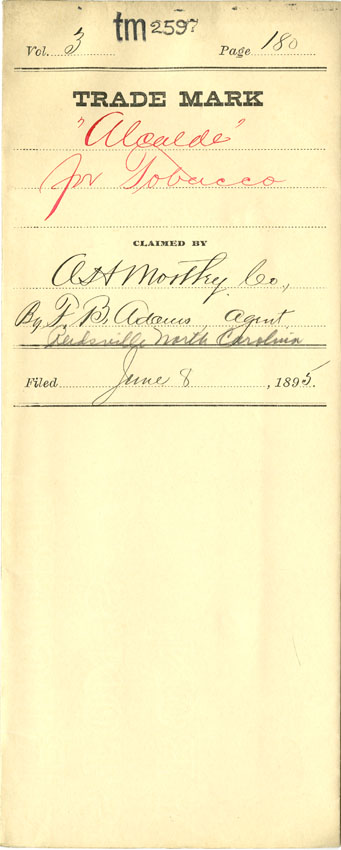 tm 2597
Vol. 3 Page 180
TRADE MARK
"Alcalde"
for Tobacco
CLAIMED BY
A H Motley Co.,
By F. B. Adams Agent
Reidsville North Carolina
Filed June 8, 1895.